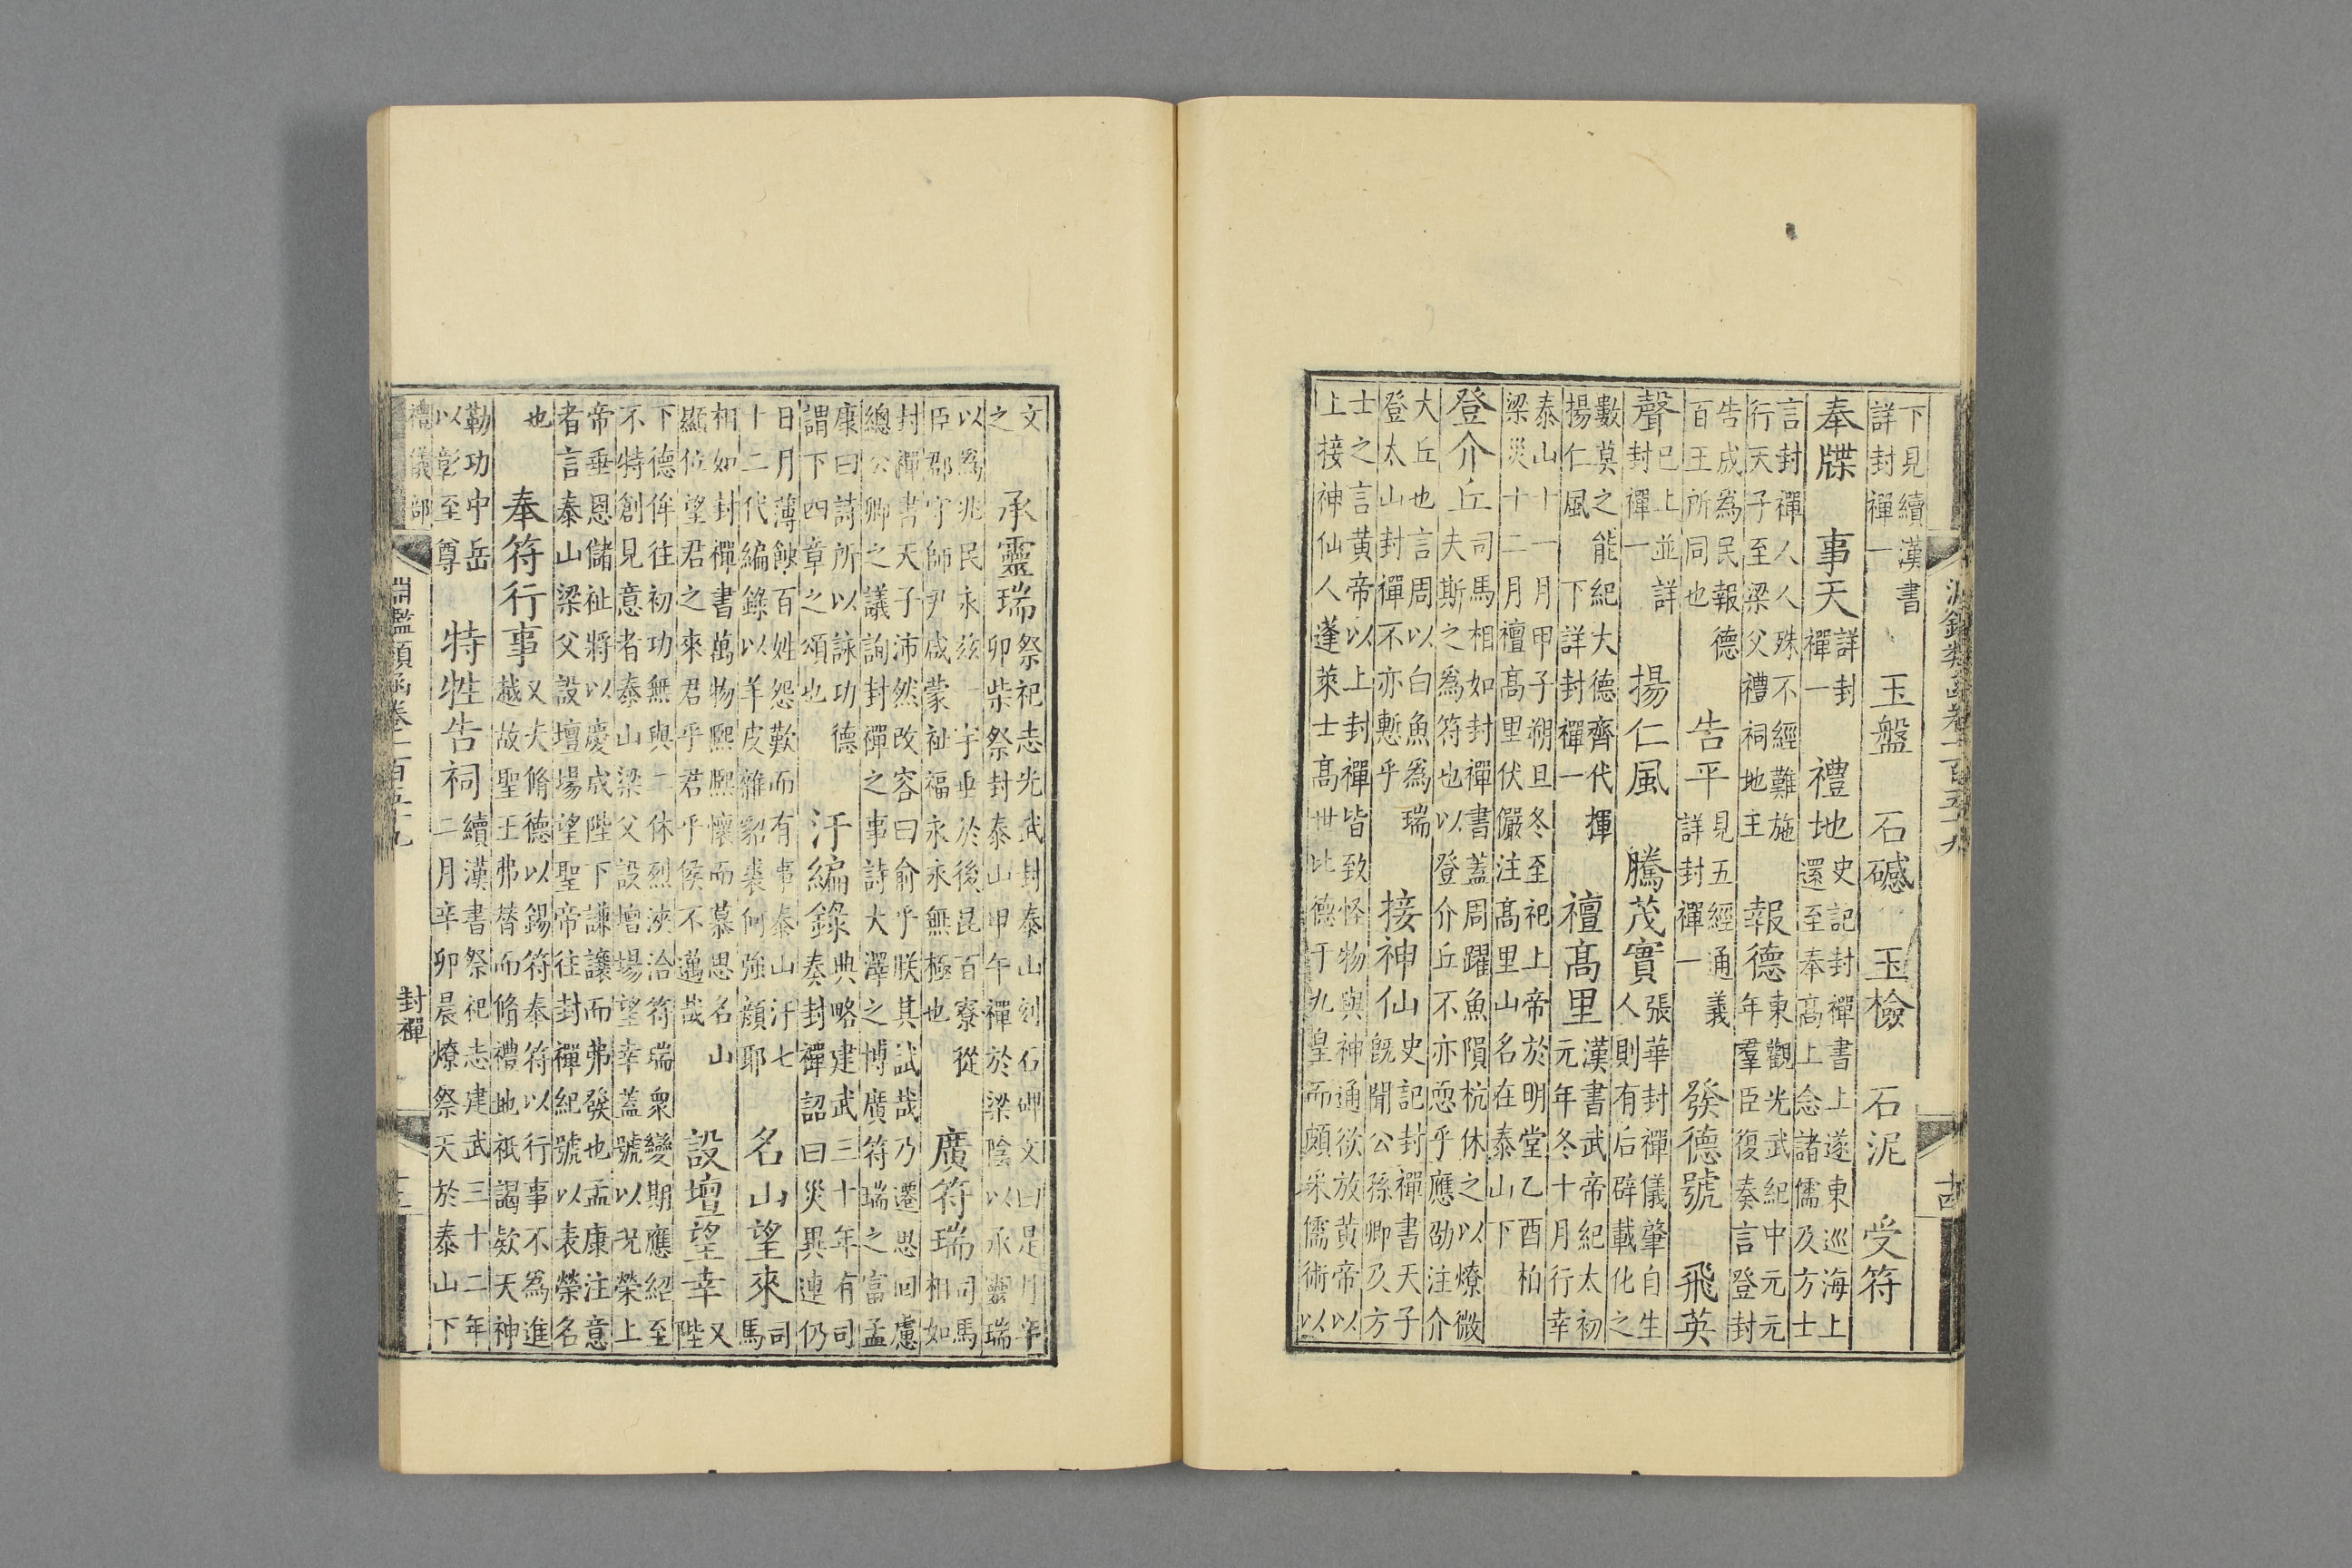 淵鑑類函卷一百五十九 十四
下見續漢書
詳封禪一
玉盤 石䃭 玉檢 石泥 受符
奉牒 事天
詳封
禪一
禮地
史記封禪書上遂東巡海上
還至奉高上念諸儒及方士
言封禪人人殊不經難施
行天子至梁父禮祠地主
報德
東觀光武紀中元元
年羣臣復奏言登封
告成爲民報德
百王所同也
告平
見五經通義
詳封禪一
發德號 飛英
聲
已上並詳
封禪一
揚仁風 騰茂實
張華封禪儀肇自生
人則有后辟載化之
數莫之能紀大德齊代揮
揚仁風下詳封禪一
禪高里
漢書武帝紀太初
元年冬十月行幸
泰山十一月甲子朔旦冬至祀上帝於明堂乙酉柏
梁災十二月禪高里伏儼注高里山名在泰山下
登介丘
司馬相如封禪書蓋周躍魚隕杭休之以燎微
夫斯之爲符也以登介丘不亦恧乎應劭注介
大丘也言周以白魚爲瑞
登太山封禪不亦慙乎
接神仙
史記封禪書天子
旣聞公孫卿及方
士之言黄帝以上封禪皆致怪物與神通欲放黄帝以
上接神仙人蓬萊士高世比德于九皇而頗采儒術以
文
之
承靈瑞
祭祀志光武封泰山刻石碑文曰是月辛
卯柴祭封泰山甲午禪於梁陰以承靈瑞
以爲兆民永兹一宇垂於後昆百寮從
臣郡守師尹咸蒙祉福永永無極也
廣符瑞
司馬
相如
封禪書天子沛然改容曰俞乎朕其試哉乃遷思回慮
總公卿之議詢封禪之事詩大澤之博廣符瑞之富孟
康曰詩所以詠功德
謂下四章之頌也
汙編錄
典略建武三十年有司
奏封禪詔曰災異連仍
日月薄蝕百姓怨歎而有事泰山汙七
十二代編錄以羊皮雜貂裘何強顔耶
名山望來
司
馬
相如封禪書萬物熙熙懷而慕思名山
顯位望君之來君乎君乎侯不邁哉
設壇望幸
又
陛
下德侔往初功無與二休烈浹洽符瑞衆變期應紹至
不特創見意者泰山梁父設壇場望幸蓋號以況榮上
帝垂恩儲祉將以慶成陛下謙讓而弗發也孟康注意
者言泰山梁父設壇場望聖帝往封禪紀號以表榮名
也
奉符行事
又夫脩德以錫符奉符以行事不爲進
越故聖王弗替而脩禮地祇謁欵天神
勒功中岳
以彰至尊
特牲告祠
續漢書祭祀志建武三十二年
二月辛卯晨燎祭天於泰山下
禮儀部 淵鑑類函卷一百五十九 封禪